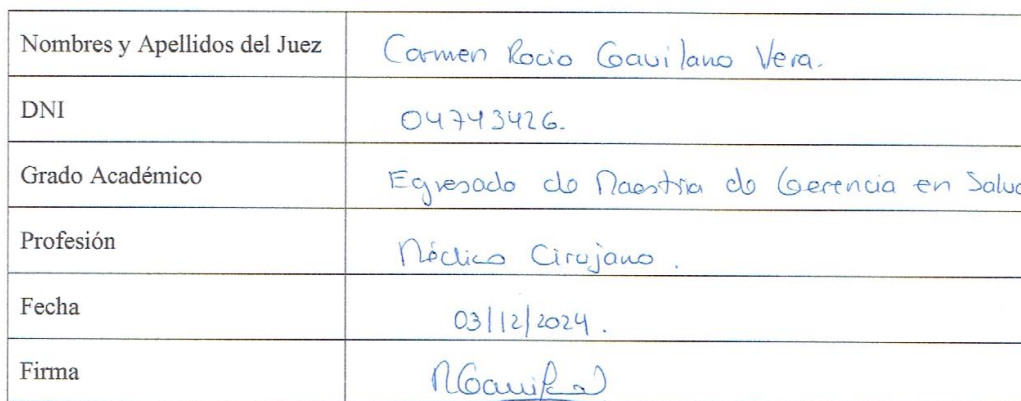 Nombres y Apellidos del Juez Carmen Rocio Gavilano Vera.
DNI 04743426.
Grado Académico Egresado de Maestria de Gerencia en Salud
Profesión Médico Cirujano.
Fecha 03/12/2024.
Firma